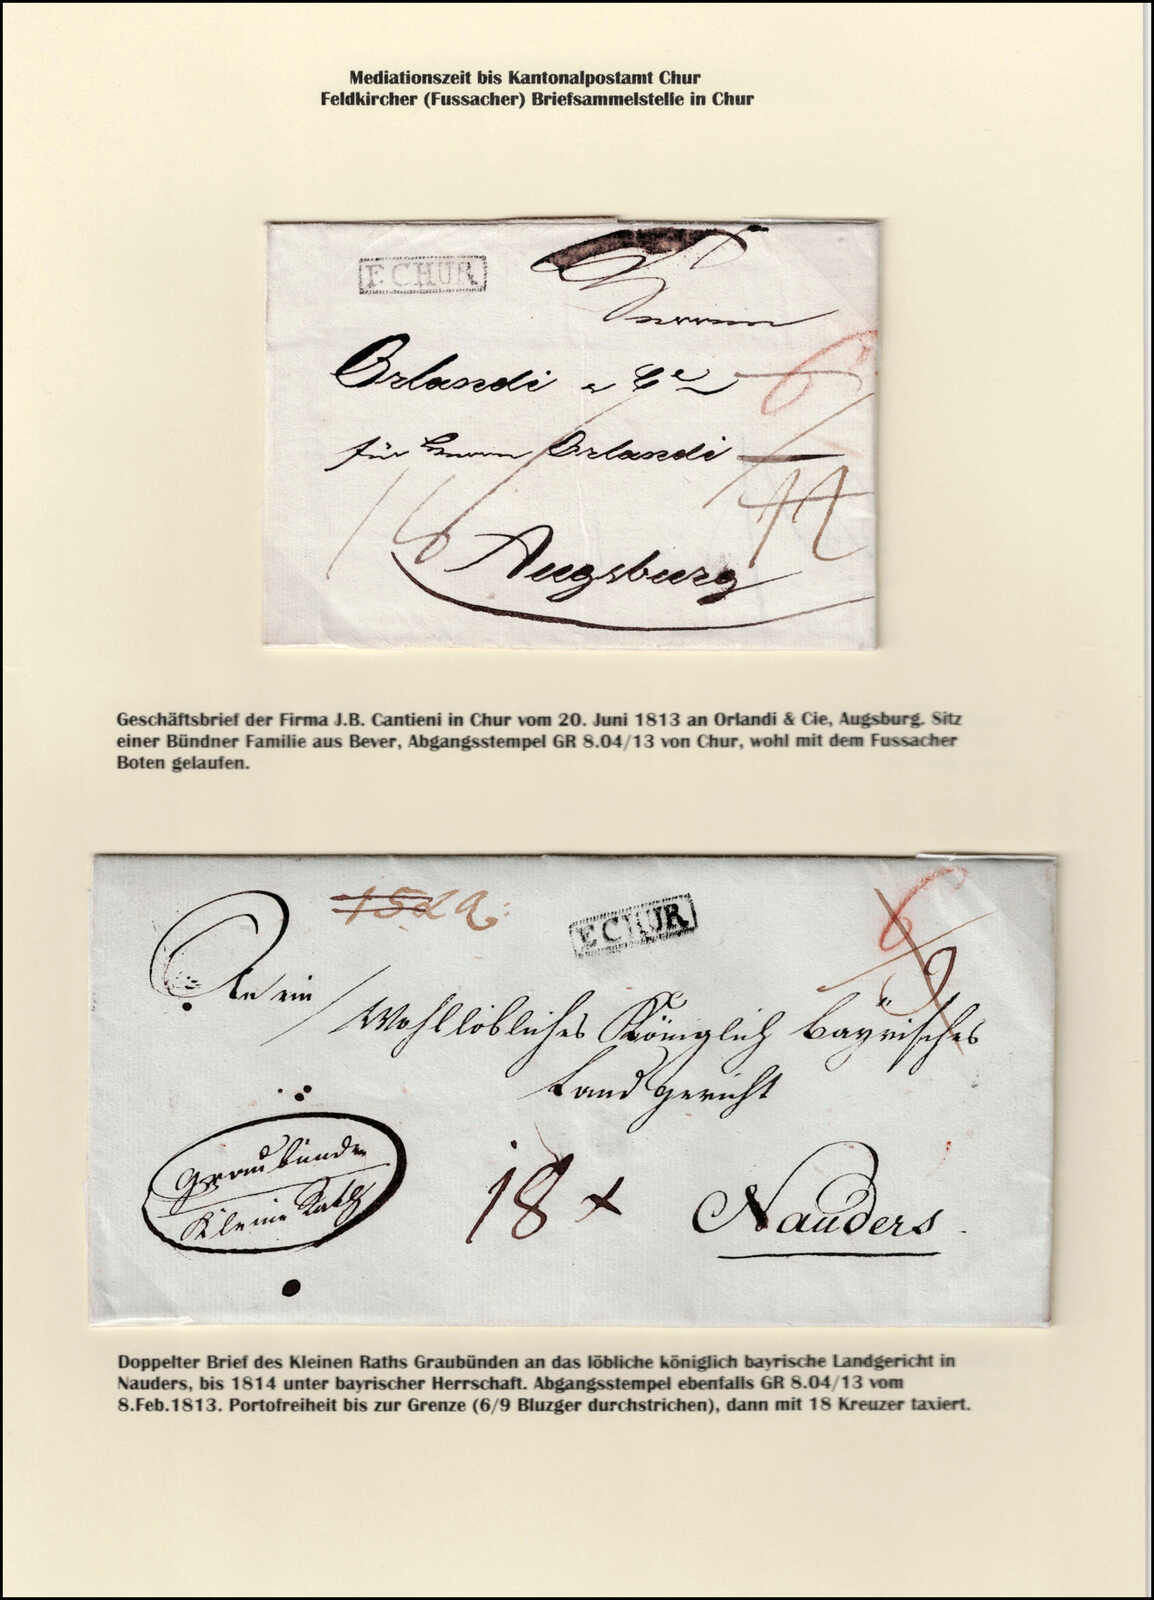 Mediationszeit bis Kantonalpostamt Chur
Feldkircher (Fussacher) Briefsammelstelle in Chur
F. CHUR
Herren
Orlandi & Cie
6
für Herrn Orlandi
16
Augsburg
Geschäftsbrief der Firma J.B. Cantieni in Chur vom 20. Juni 1813 an Orlandi & Cie, Augsburg. Sitz
einer Bündner Familie aus Bever, Abgangsstempel GR 8.04/13 von Chur, wohl mit dem Fussacher
Boten gelaufen.
F. CHUR
6
9
An ein
Wohllöbliches Königlich Bayrisches
Landgericht
Graubünden
Kleine Rath
18 x
Nauders.
Doppelter Brief des Kleinen Raths Graubünden an das löbliche königlich bayrische Landgericht in
Nauders, bis 1814 unter bayrischer Herrschaft. Abgangsstempel ebenfalls GR 8.04/13 vom
8.Feb.1813. Portofreiheit bis zur Grenze (6/9 Bluzger durchstrichen), dann mit 18 Kreuzer taxiert.